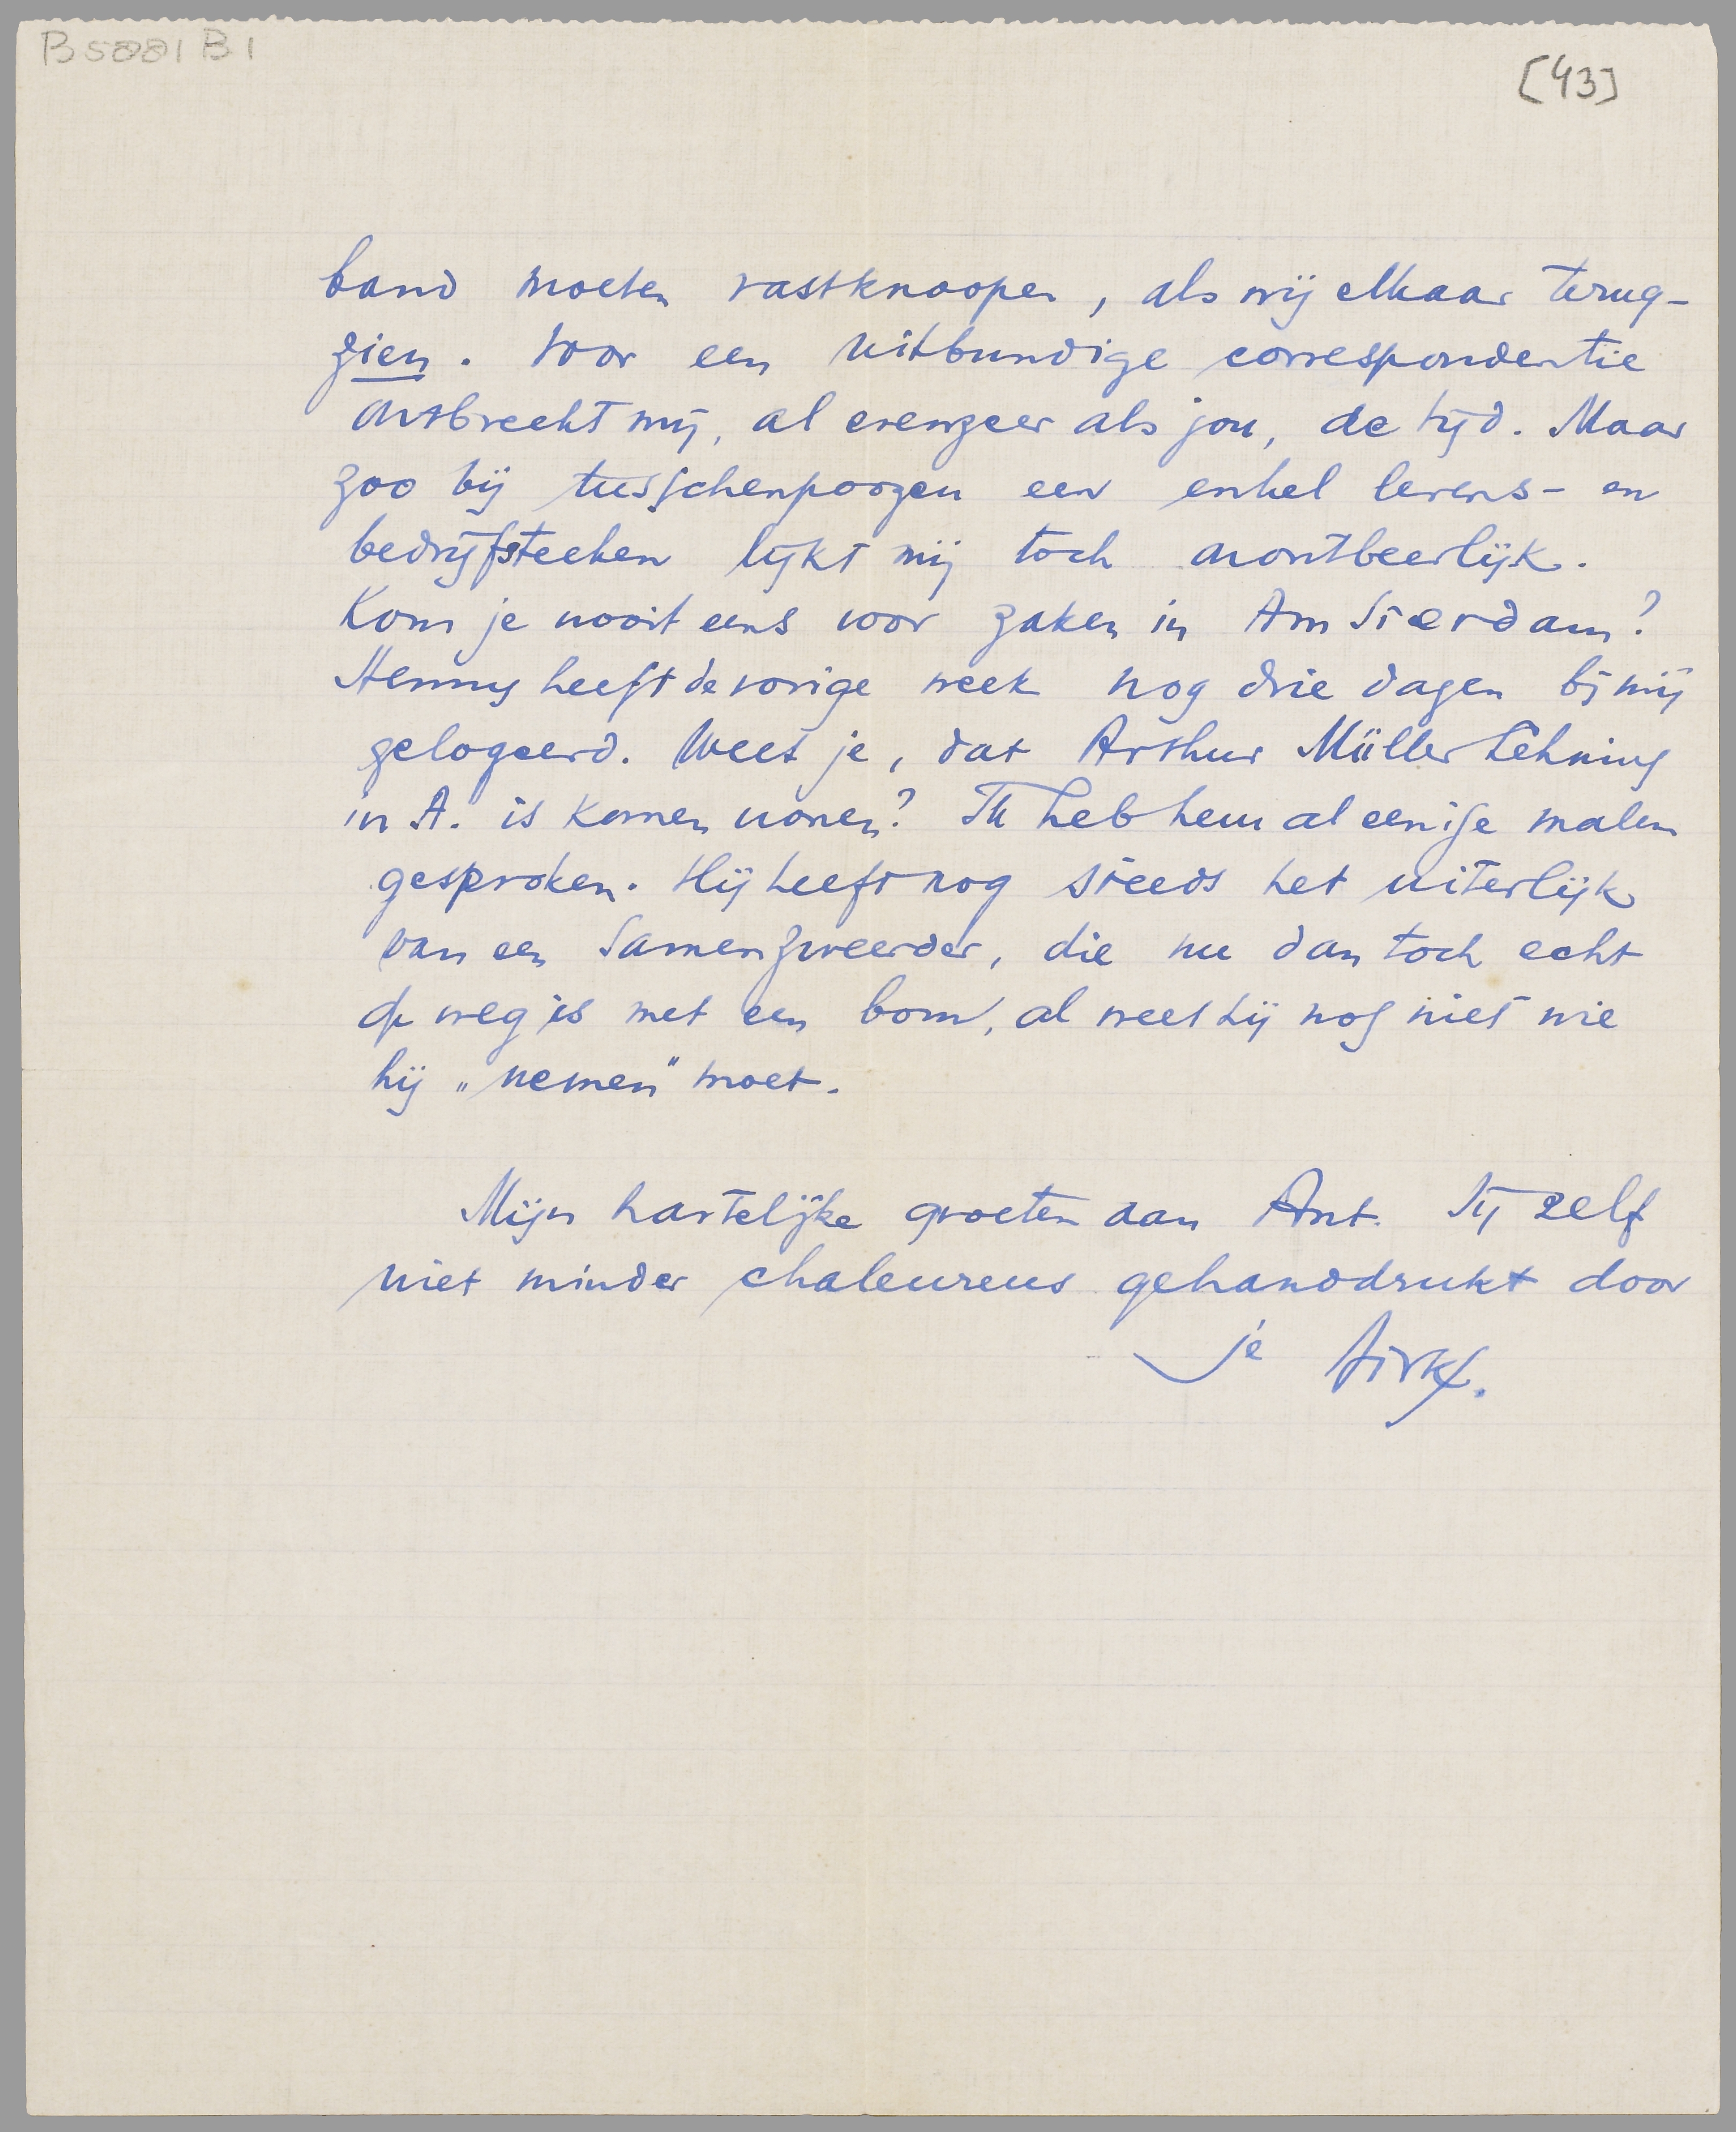 B5001 B1
[43]
band moeten vastknoopen, als wij elkaar terug-
zien. Voor een uitbundige correspondentie
ontbreekt mij, al evenzeer als jou, de tijd. Maar
zoo bij tusschenpoozen een enkel levens- en
bedrijfsteeken lijkt mij toch onontbeerlijk.
Kom je nooit eens voor zaken in Amsterdam?
Henny heeft de vorige week nog drie dagen bij mij
gelogeerd. Weet je, dat Arthur Müller Lehning
in A. is komen wonen? Ik heb hem al eenige malen
gesproken. Hij heeft nog steeds het uiterlijk
van een samenzweerder, die nu dan toch echt
op weg is met een bom, al weet hij nog niet wie
hij „nemen" moet.
Mijn hartelijke groeten aan Ant. Jij zelf
niet minder chaleureus gehanddrukt door
je Dirk.